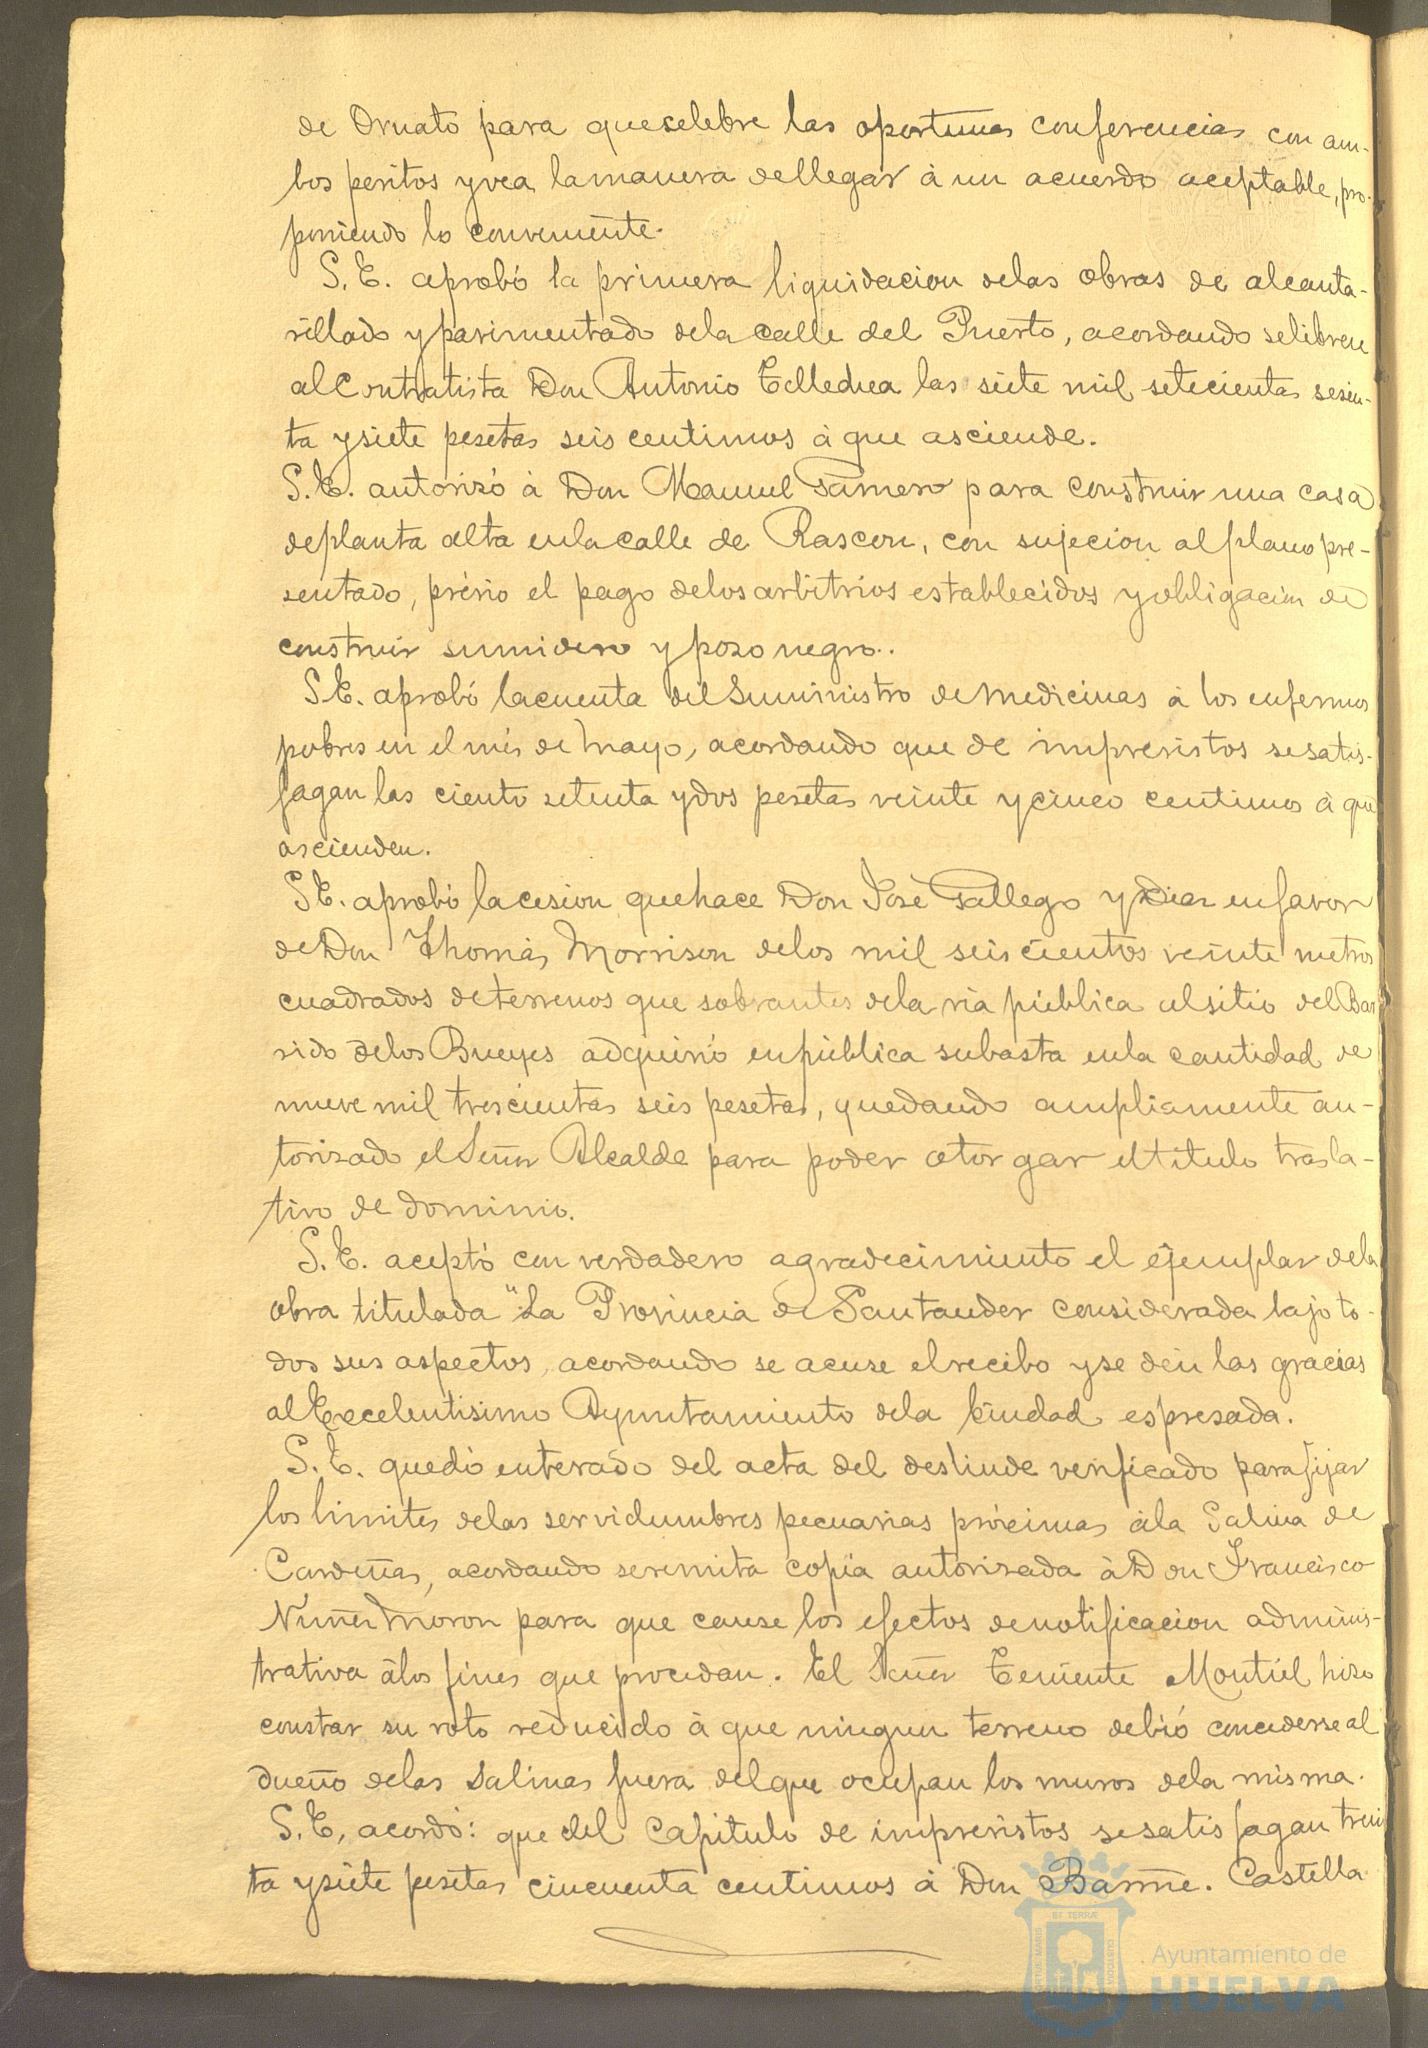 de Ornato para que selebre las oportunas conferencias con am-
bos peritos y vea la manera de llegar á un acuerdo aceptable, pro-
poniendo lo conveniente.
S. E. aprobó la primera liquidacion de las obras de alcanta-
rillado y pavimentado de la calle del Puerto, acordando se libren
al Contratista Don Antonio las siete mil setecientas sesen-
ta y siete pesetas seis centimos á que asciende.
S. E. autorizó á Don Manuel para construir una casa
de planta alta en la calle de Rascon, con sujecion al plano pre-
sentado, prévio el pago de los arbitrios establecidos y obligacion de
construir sumidero y pozo negro.
S. E. aprobó la cuenta del Suministro de Medicinas á los enfermos
pobres en el mes de Mayo, acordando que de imprevistos se satis-
fagan las ciento setenta y dos pesetas veinte y cinco centimos á que
ascienden.
S. E. aprobó la cesion que hace Don José Gallego y Diaz en favor
de Don Thomás Morrison de los mil seiscientos veinte metros
cuadrados de terrenos que sobrantes de la via pública al sitio del Ba-
rido de los Bueyes adquirió en pública subasta en la cantidad de
nueve mil trescientas seis pesetas, quedando ampliamente au-
torizado el Señor Alcalde para poder otorgar el titulo trasla-
tivo de dominio.
S. E. aceptó con verdadero agradecimiento el ejemplar de la
obra titulada "La Provincia de Santander considerada bajo to-
dos sus aspectos, acordando se acuse el recibo y se dén las gracias
al Excelentisimo Ayuntamiento de la Ciudad espresada.
S. E. quedó enterado del acta del deslinde verificado para fijar
los limites de las servidumbres pecuarias próximas á la Salina de
Cardeñas, acordando se remita copia autorizada á Don Francisco
Nuñez Moron para que cause los efectos de notificacion adminis-
trativa á los fines que procedan. El Señor Teniente Montiel hizo
constar su voto reducido á que ningun terreno debió concederse al
dueño de las Salinas fuera del que ocupan los muros de la misma.
S. E. acordó: que del Capitulo de imprevistos se satisfagan trein
ta y siete pesetas cincuenta centimos á Don Barme. Castella
ET TERRÆ
Ayuntamiento de
HUELVA